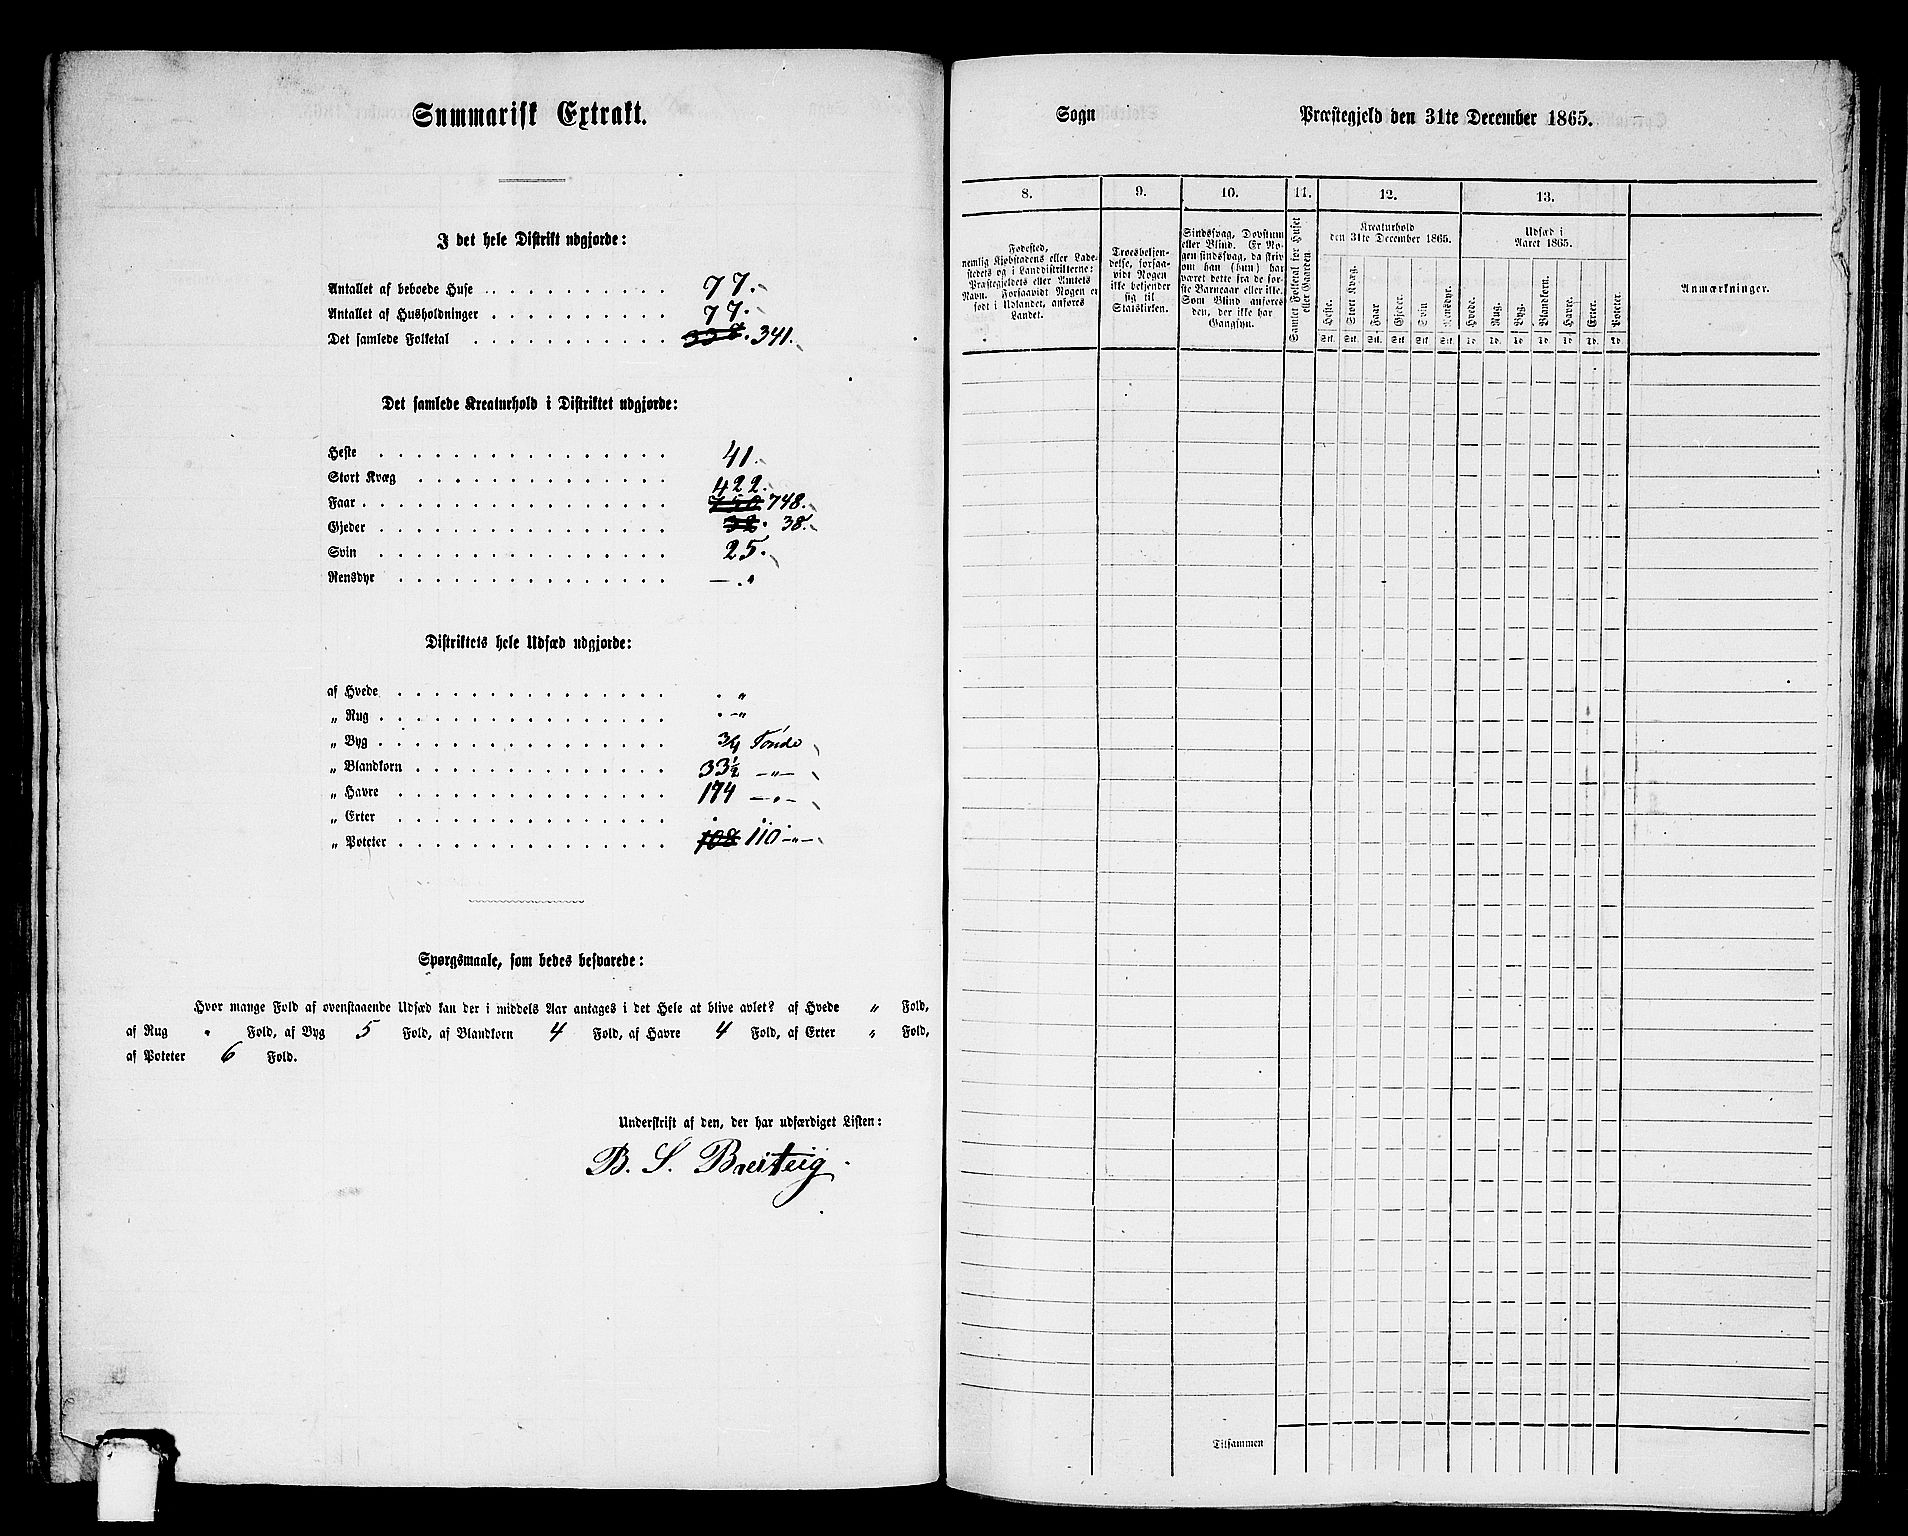 Summarisk Extrakt.
I det hele Distrikt udgjorde:
Antallet af beboede Huse . . . . . . . . . . 77.
Antallet af Husholdninger . . . . . . . . . . 77.
Det samlede Folketal . . . . . . . . . . 338. 341.
Det samlede Kreaturhold i Distriktet udgjorde:
Heste . . . . . . . . . . 41.
Stort Kvæg . . . . . . . . . . 422.
Faar . . . . . . . . . . 750 748.
Gjeder . . . . . . . . . . 32. 38.
Svin . . . . . . . . . . 25.
Rensdyr . . . . . . . . . . — . „
Distriktets hele Udsæd udgjorde:
af Hvede . . . . . . . . . . „
„ Rug . . . . . . . . . . -„
„ Byg . . . . . . . . . . 3/4 Tønde
„ Blandkorn . . . . . . . . . . 33 1/2 —„—
„ Havre . . . . . . . . . . 174 —„—
„ Erter . . . . . . . . . .
„ Poteter . . . . . . . . . . 108 110 —„—
Spørgsmaale, som bedes besvarede:
Hvor mange Fold af ovenstaaende Udsæd kan der i middels Aar antages i det Hele at blive avlet? af Hvede „ Fold,
af Rug „ Fold, af Byg 5 Fold, af Blandkorn 4 Fold, af Havre 4 Fold, af Erter „ Fold,
af Poteter 6 Fold.
Underskrift af den, der har udfærdiget Listen:
B. S. Breiteig.
Sogn Præstegjeld den 31te December 1865.
8. 9. 10. 11. 12. 13.
Fødested,
nemlig Kjøbstadens eller Lade-
stedets og i Landdistrikterne:
Præstegjeldets eller Amtets
Navn. Forsaavidt Nogen er
født i Udlandet, anføres
Landet.
Troesbekjen-
delse, forsaa-
vidt Nogen
ikke bekjender
sig til
Statskirken.
Sindssvag, Døvstum
eller Blind. Er No-
gen sindssvag, da skriv
om han (hun) har
været dette fra de før-
ste Barneaar eller ikke.
Som Blind anføres
den, der ikke har
Gangsyn.
Samlet Folketal for Huset
eller Gaarden.
Kreaturhold
den 31te December 1865.
Heste. Stort Kvæg. Faar Gjeder. Svin Rensdyr.
Stk. Stk. Stk. Stk. Stk. Stk.
Udsæd i
Aaret 1865.
Hvede. Rug. Byg. Blandkorn. Havre. Erter. Poteter.
Td. Td. Td. Td. Td. Td. Td.
Anmærkninger.
Tilsammen